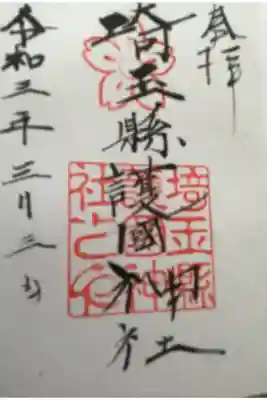 奉拝
埼玉縣護國神社
埼玉縣護國神社之印
令和三年三月三日